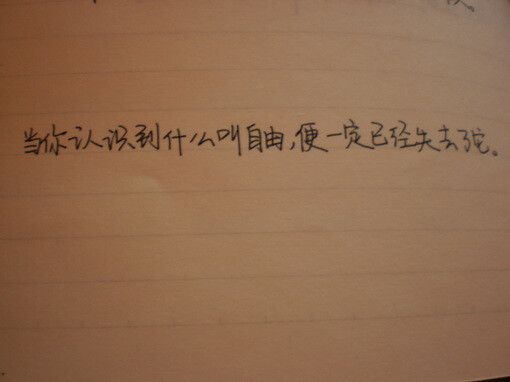 当你认识到什么叫自由,便一定已经失去了它。